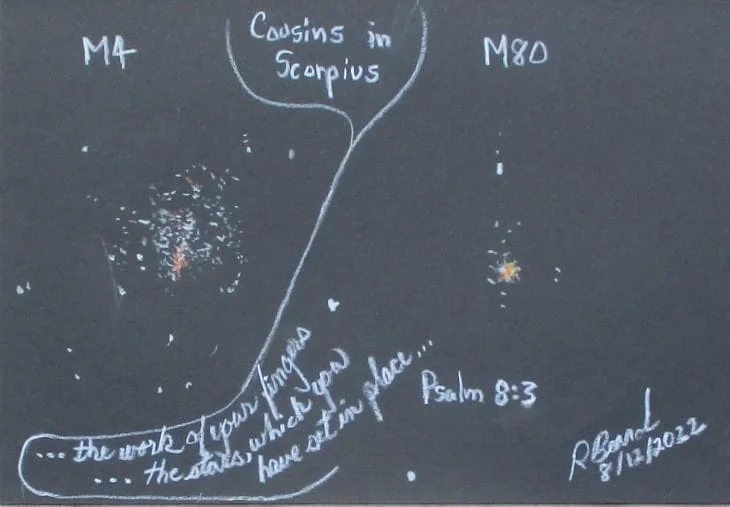 M4
Cousins in
Scorpius
M80
... the work of your fingers
... the stars, which you
have set in place...
Psalm 8:3
8/12/2022